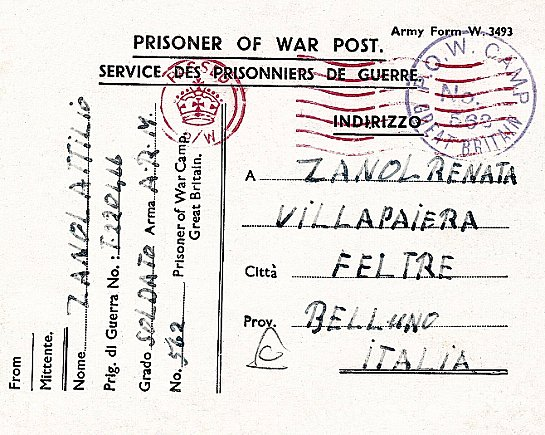 Army Form W. 3493
PRISONER OF WAR POST.
SERVICE DES PRISONNIERS DE GUERRE.
PASSED
P/W
P.O.W. CAMP
No.
563
GREAT BRITAIN
INDIRIZZO
A ZANOL RENATA
VILLAPAIERA
Città FELTRE
Prov. BELLUNO
ITALIA
C
From
Mittente.
Nome ZANOL ATTILIO
Prig. di Guerra No.:
Grado SOLDATO Arma A.R.M.
No. 562 Prisoner of War Camp.
Great Britain.